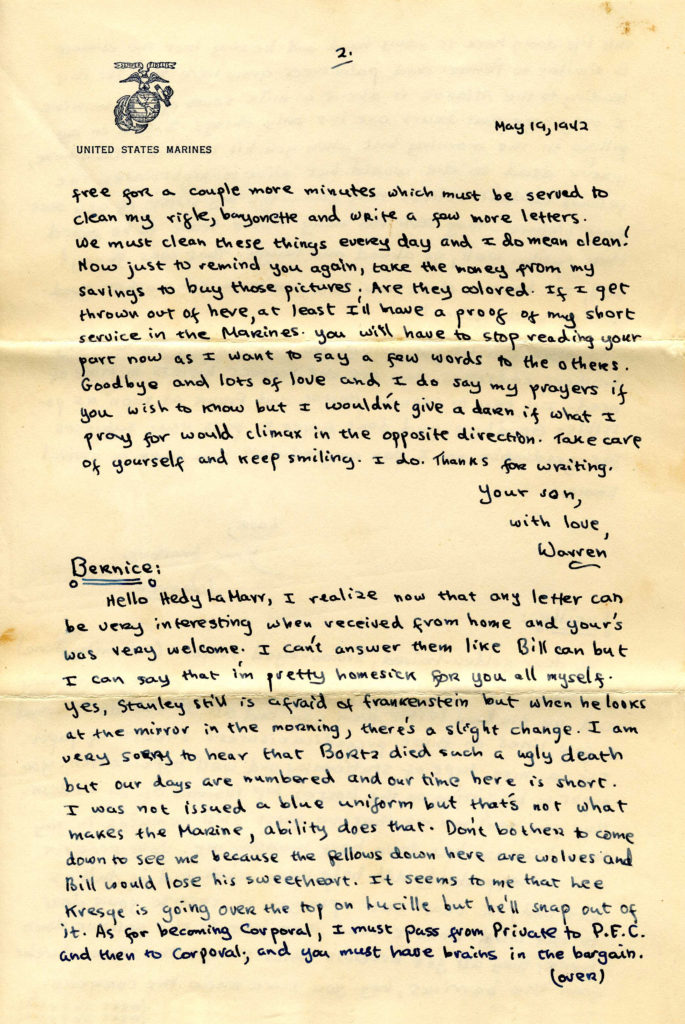 2.
May 19, 1942
UNITED STATES MARINES
free for a couple more minutes which must be served to
clean my rifle, bayonette and write a few more letters.
We must clean these things every day and I do mean clean!
Now just to remind you again, take the money from my
savings to buy those pictures. Are they colored. If I get
thrown out of here, at least I'll have a proof of my short
service in the Marines. you will have to stop reading your
part now as I want to say a few words to the others.
Goodbye and lots of love and I do say my prayers if
you wish to know but I wouldn't give a darn if what I
pray for would climax in the opposite direction. Take care
of yourself and keep smiling. I do. Thanks for writing.
Your son,
with love,
Warren
Bernice:
Hello Hedy LaMarr, I realize now that any letter can
be very interesting when received from home and your's
was very welcome. I can't answer them like Bill can but
I can say that i'm pretty homesick for you all myself.
Yes, Stanley still is afraid of frankenstein but when he looks
at the mirror in the morning, there's a slight change. I am
very sorry to hear that Bortz died such a ugly death
but our days are numbered and our time here is short.
I was not issued a blue uniform but that's not what
makes the Marine, ability does that. Don't bother to come
down to see me because the fellows down here are wolves and
Bill would lose his sweetheart. It seems to me that Lee
Kresge is going over the top on Lucille but he'll snap out of
it. As for becoming Corporal, I must pass from Private to P.F.C.
and then to Corporal, and you must have brains in the bargain.
(over)